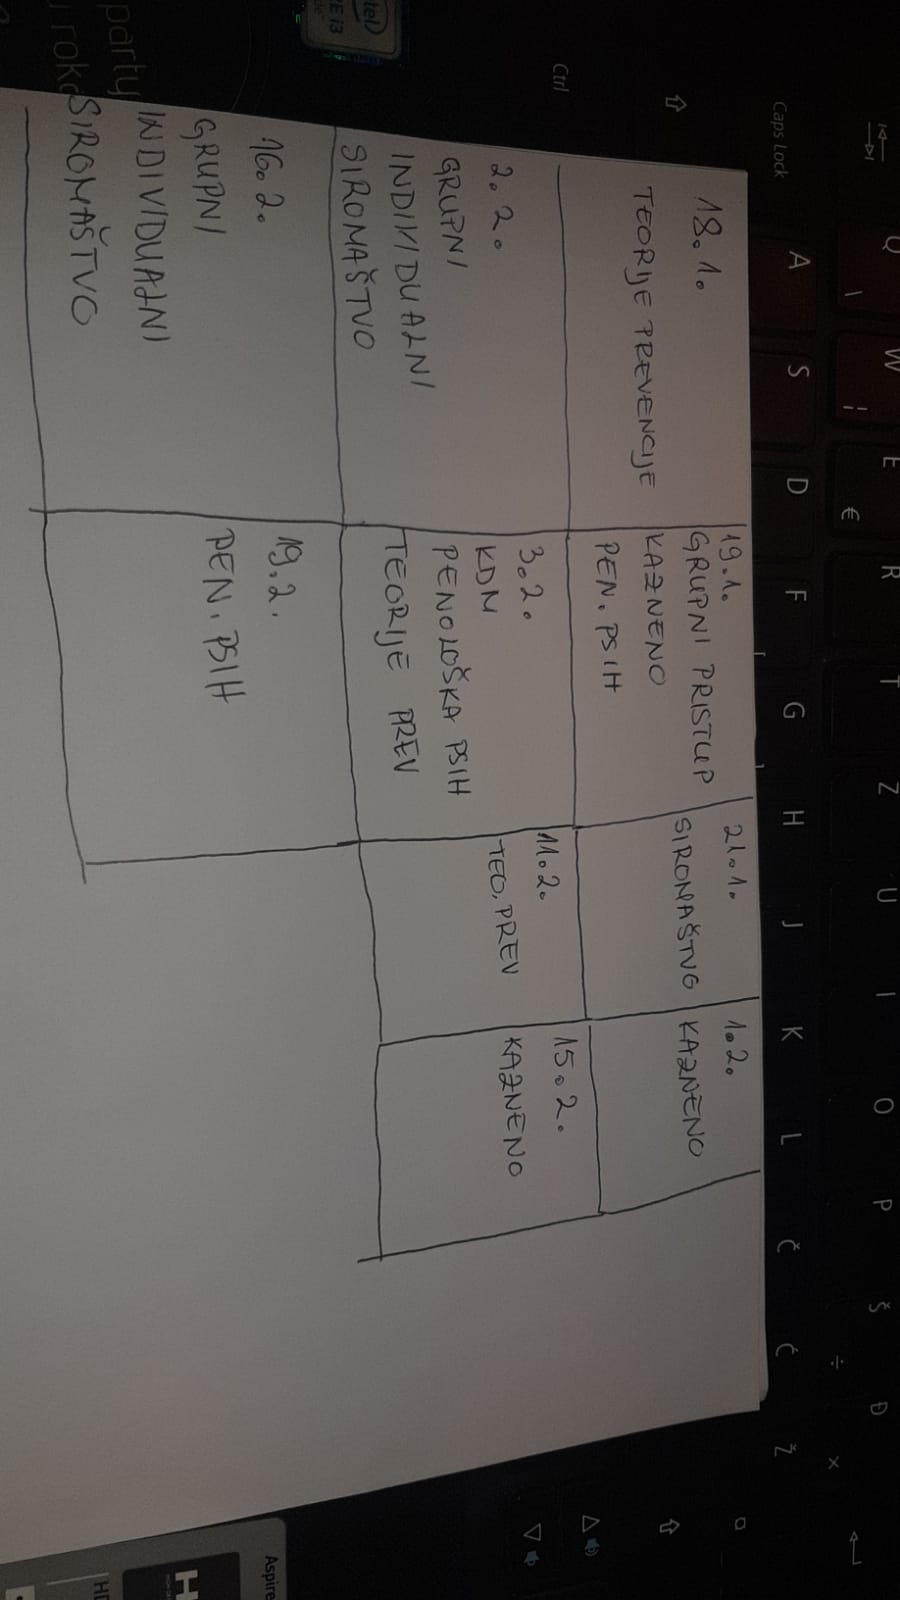 Q W E R T Z U I O P Š Đ
\ ¦ € ÷ ×
Caps Lock A S D F G H J K L Č Ć Ž
[ ]
Ctrl
18.1.
TEORIJE PREVENCIJE
19.1.
GRUPNI PRISTUP
KAZNENO
PEN. PSIH
21.1.
SIROMAŠTVO
1.2.
KAZNENO
2.2.
GRUPNI
INDIVIDUALNI
SIROMAŠTVO
3.2.
KDM
PENOLOŠKA PSIH
TEORIJE PREV
11.2.
TEO. PREV
15.2.
KAZNENO
16.2.
GRUPNI
INDIVIDUALNI
SIROMAŠTVO
19.2.
PEN. PSIH
Aspire
party